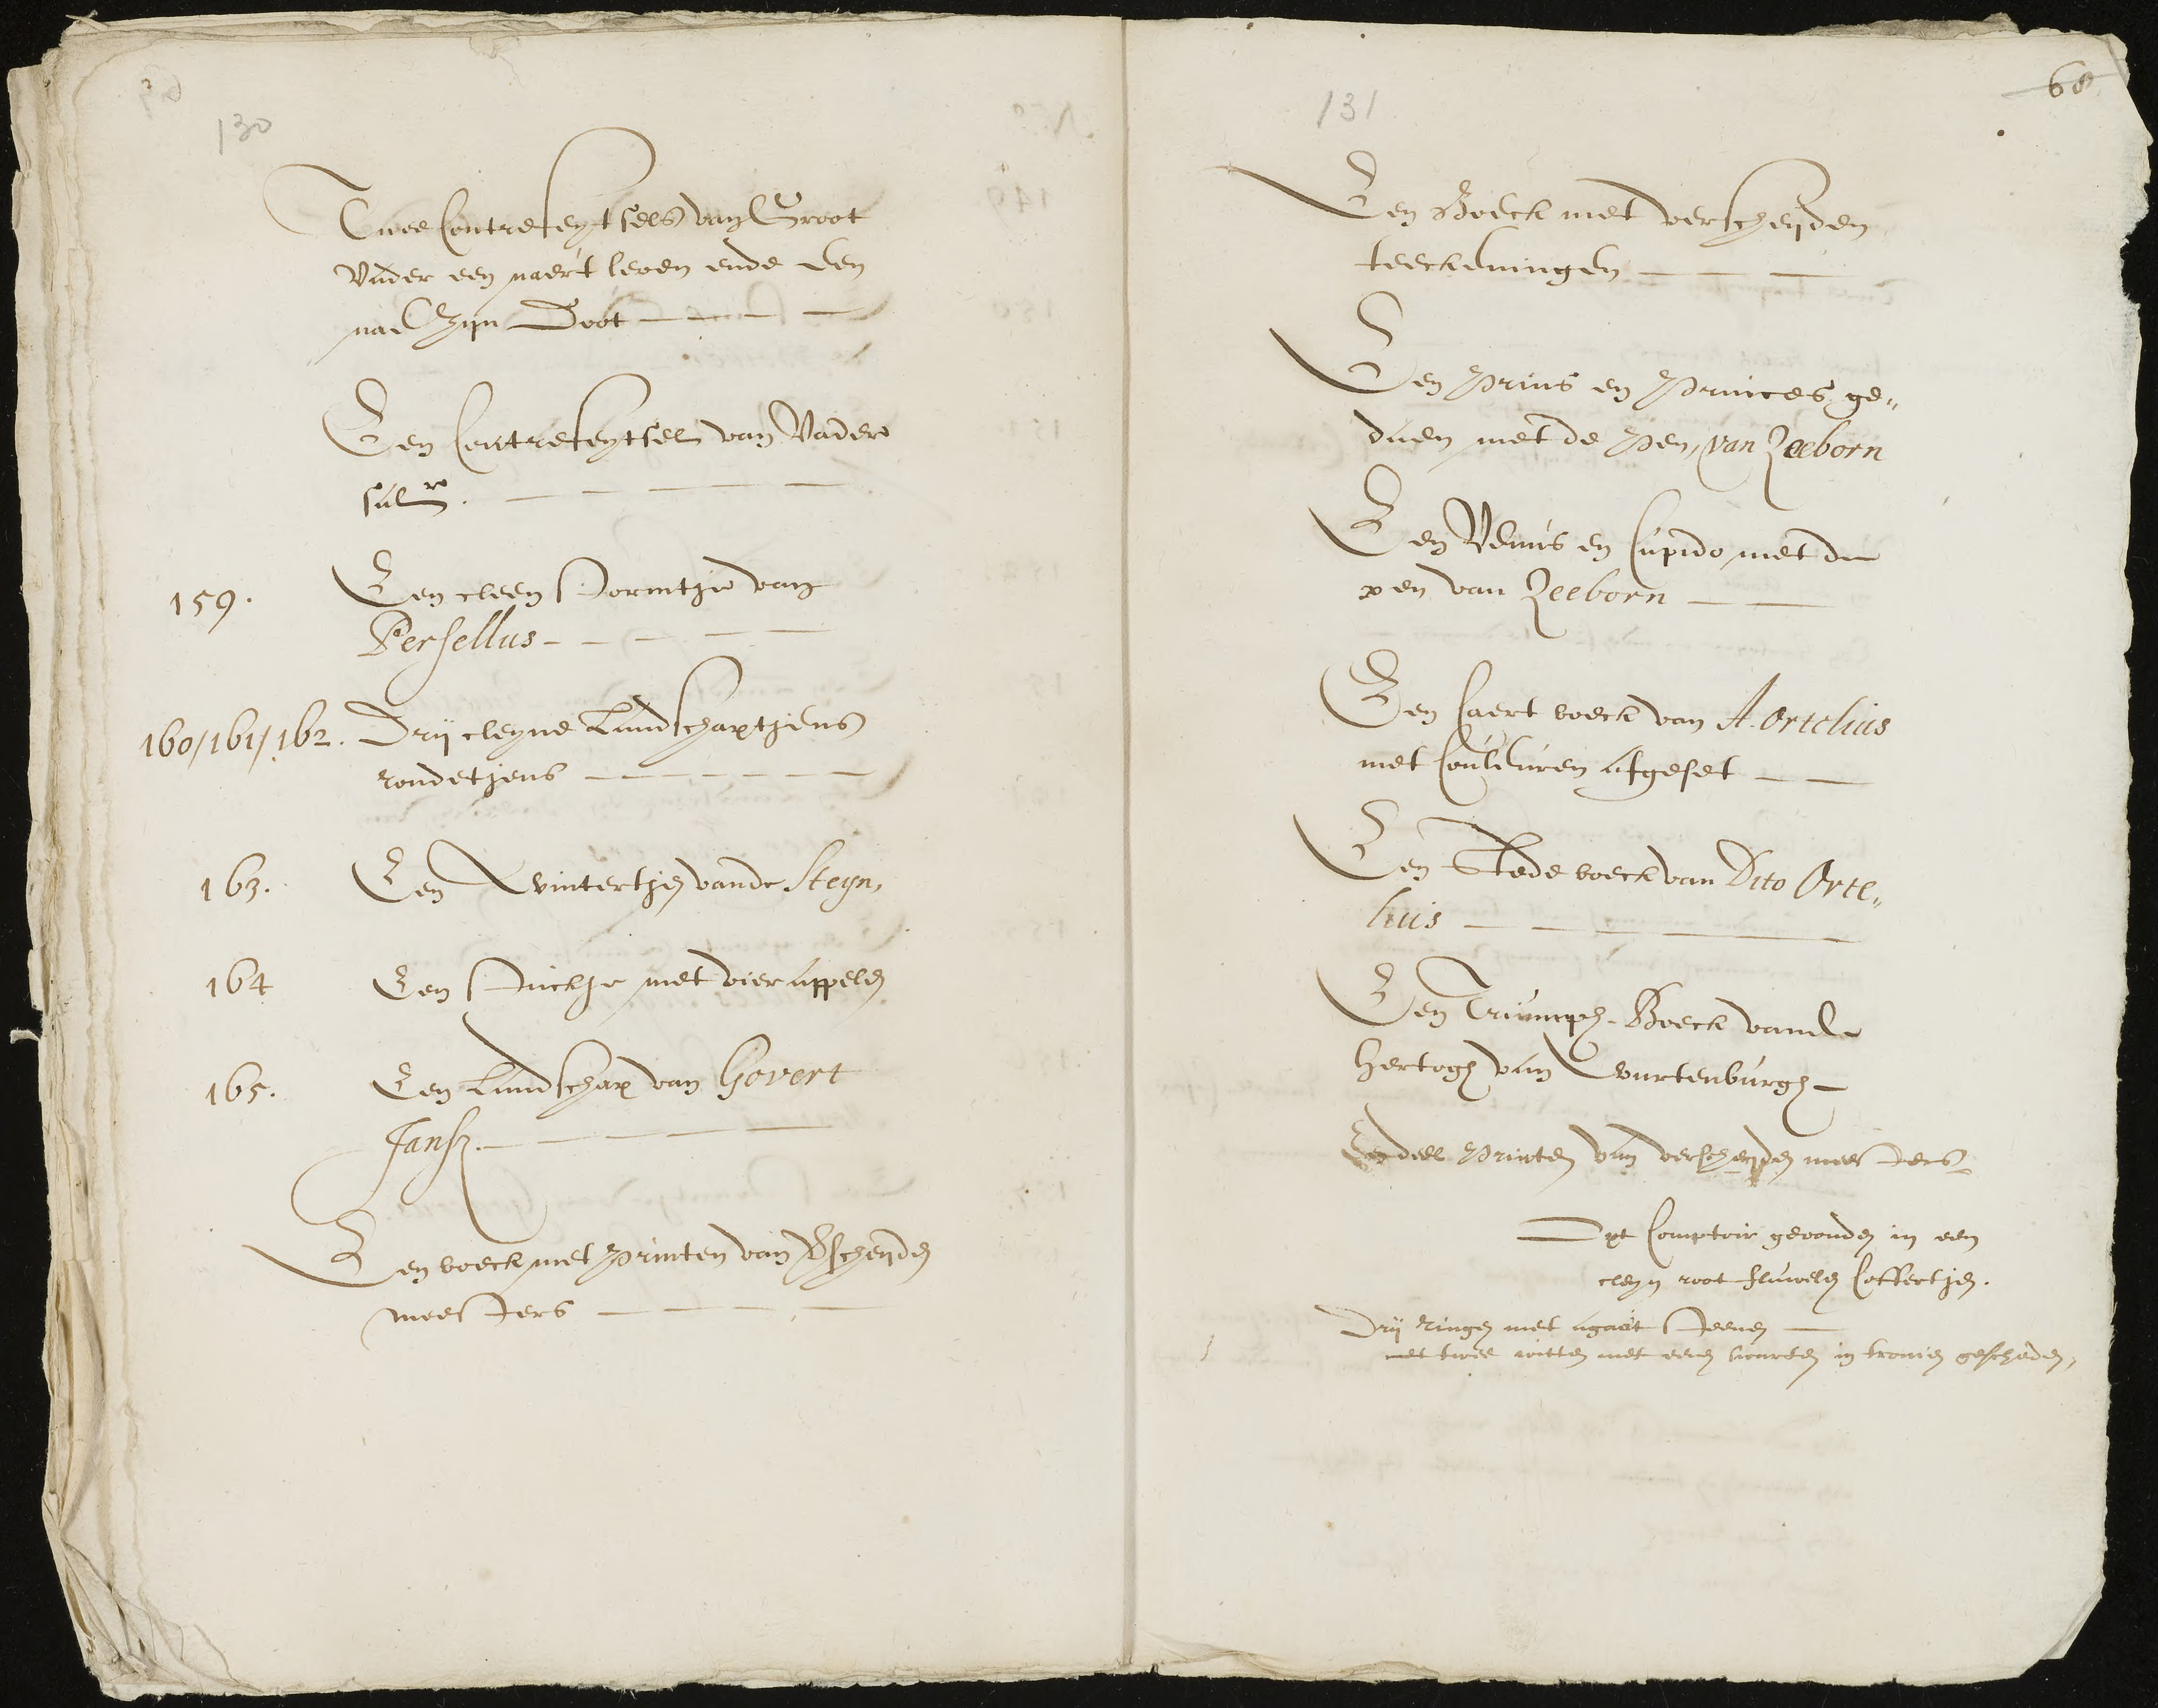 130
Twee Contrefeytsels van Groot
Vader een naer't leven ende een
nae Zyn Doot
Een Contrefeytsel van Vader
salr.
159. Een cleen Stormtje van
Persellus
160/161/162. Drij cleyne Landschaptjens
rondetjens
163. Een Wintertjen vande Steyn,
164 Een Stuckje met vier appelen
165. Een Landschap van Govert
Jansz.
Een boeck met Printen van Vscheyden
meesters
131
60
Een Boeck met verscheyden
teeckeningen
Een Prins en Princes ge„
daen met de Pen, van Zeeborn
Een Venus en Cupido met de
pen van Zeeborn
Een Caert boeck van A. Ortelius
met Couleuren afgeset
Een Stede boeck van Dito Orte„
lius
Een Triumph-Boeck vande
Hertogh van Wurtenburgh
Een deel Printen van verscheyden meesters
Opt Comptoir gevonden in een
cleyn root fluwelen Coffertjen.
Drij Ringen met agaat Steenen
met twee witten met eenen swarten in tronien gescheden,